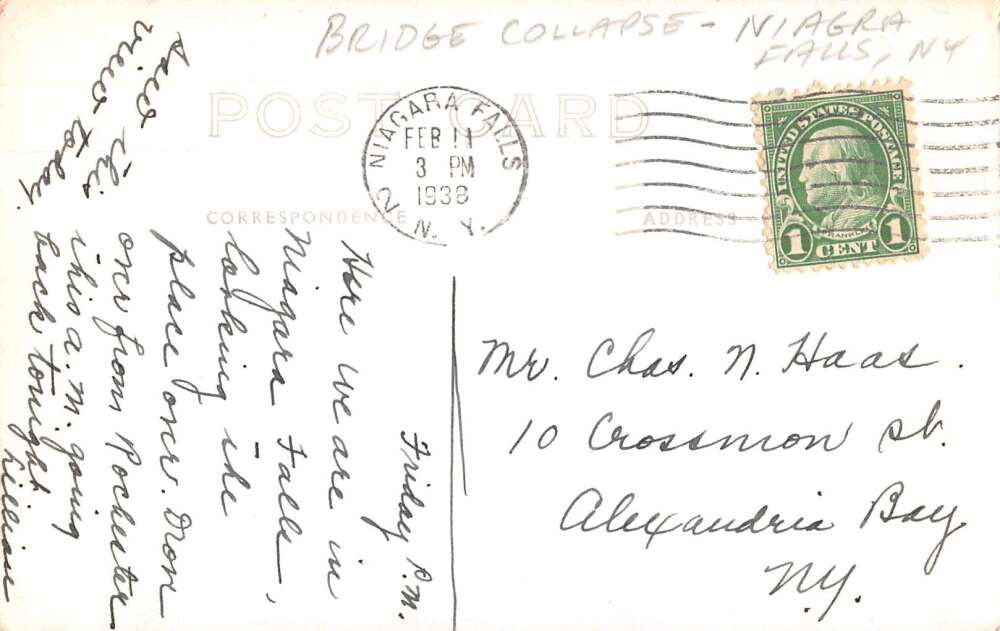 BRIDGE COLLAPSE - NIAGRA
FALLS, NY
POST CARD
NIAGARA FALLS
2
FEB 11
3 PM
1938
N. Y.
UNITED STATES POSTAGE
FRANKLIN
1 CENT 1
CORRESPONDENCE
ADDRESS
Friday P.M.
Here we are in
Niagara Falls,
looking the
place over. Drove
over from Rochester
this a.m. going
back tonight
Lillian
Saw this
view today.
Mr. Chas. N. Haas.
10 Crossmon St.
Alexandria Bay
N.Y.